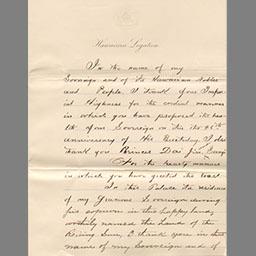 Hawaiian Legation
In the name of my
Sovereign and of the Hawaiian Nobles
and People, I thank your Imperial
Highness for the cordial manner
in which you have proposed the health
of your Sovereign on this the 45th
anniversary of His Birthday. I also
thank you Prince Dai jin,
For the hearty manner
in which you have greeted the toast.
In this Palace the residence
of my Gracious Sovereign during
his sojourn in this happy land,
worthily named the Land of the
Rising Sun, I thank you in the
name of my Sovereign and of